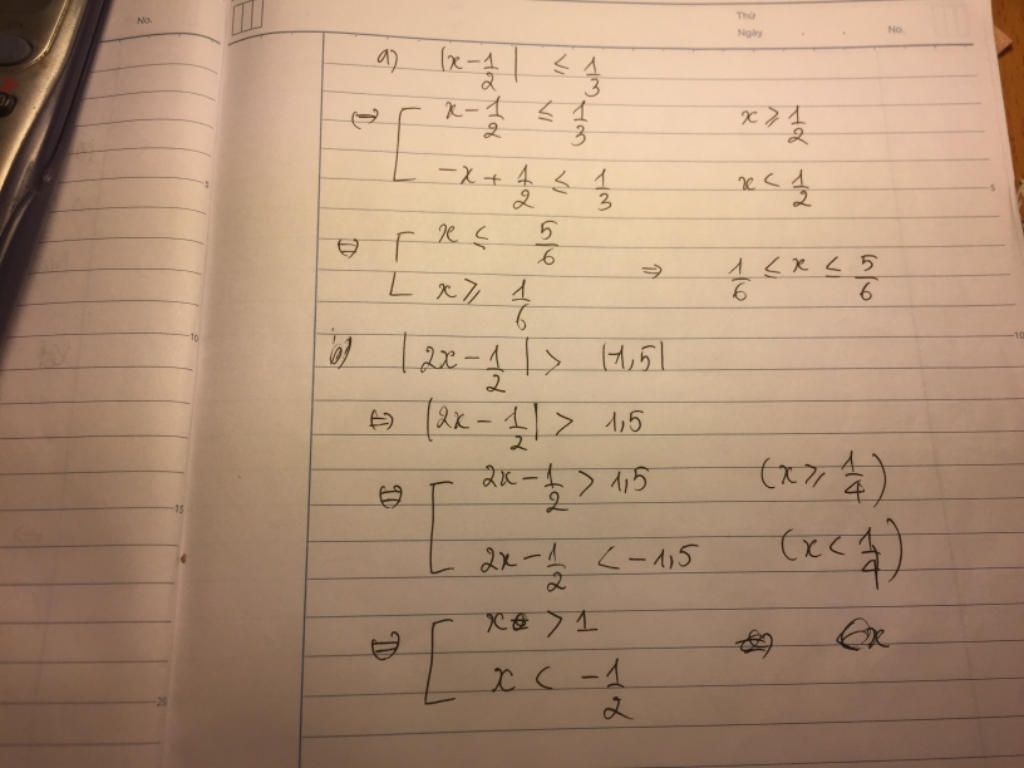 No.
Thứ
Ngày . . No.
a) |x - 1/2| ≤ 1/3
⇔ [ x - 1/2 ≤ 1/3 x ≥ 1/2
-x + 1/2 ≤ 1/3 x < 1/2
⇔ [ x ≤ 5/6
x ≥ 1/6 ⇒ 1/6 ≤ x ≤ 5/6
b) |2x - 1/2| > |-1,5|
⇔ |2x - 1/2| > 1,5
⇔ [ 2x - 1/2 > 1,5 (x ≥ 1/4)
2x - 1/2 < -1,5 (x < 1/4)
⇔ [ x > 1
x < -1/2
5
10
15
25
5
10